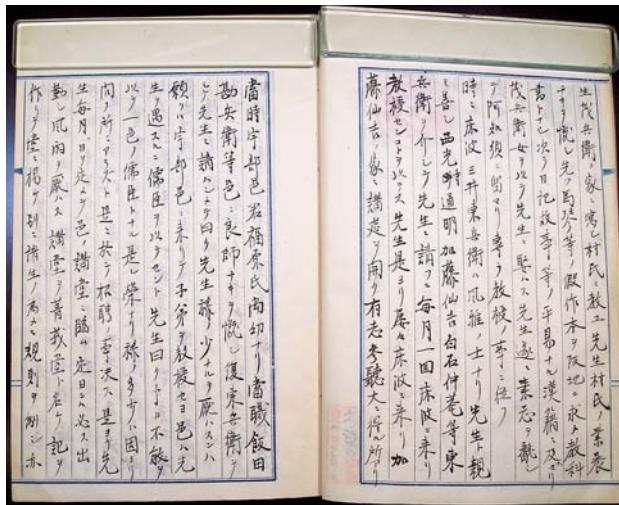 生茂兵衛ノ家ニ寓シ村民ニ教ユ先生村民ノ素養
ナキヲ慨シ先ツ馬琴等ノ假作本ヲ阪地ニ求メ教科
書トナシ次テ日記故事等ノ平易ナル漢籍ニ及ホセリ
茂兵衛女ヲ以テ先生ニ娶ハス先生遂ニ素志ヲ飜シ
テ阿知須ニ留マリ専ラ教授ノ事ニ従フ
時ニ床波三井東兵衛ハ風雅ノ士ナリ先生ト親
ミ善シ西光寺道明加藤仙吉白石仲菴等東
兵衛ヲ介シテ先生ニ請フニ毎月一回床波ニ来リ
教授センコトヲ以テス先生是ヨリ屡々床波ニ来リ加
藤仙吉ノ家ニ講莚ヲ開ク有志参聽大ニ得ル所アリ
當時宇部邑岩福原氏尚幼ナリ當職飯田
勘兵衛等邑ニ良師ナキヲ慨シ復東兵衛ヲ
シテ先生ニ請ハシメテ曰ク先生禄ノ少ナルヲ厭ハスンハ
願クハ宇部邑ニ来リテ子弟ヲ教授セヨ邑ハ先
生ヲ遇スルニ儒臣ヲ以テセント先生曰ク予ノ不敏ヲ
以テ一邑ノ儒臣トナル是レ榮ナリ禄ノ多少ハ固ヨリ
問フ所ニアラスト是ニ於テ招聘ノ事決ス是ヨリ先
生毎月日ヲ定メテ邑ノ講堂ニ臨ム定日ニハ必ス出
勤シ風雨ヲ厭ハス講堂ヲ菁莪堂ト名ケ記ヲ
作リテ堂ニ揚ケ別ニ諸生ノ爲メニ規則ヲ制シ亦